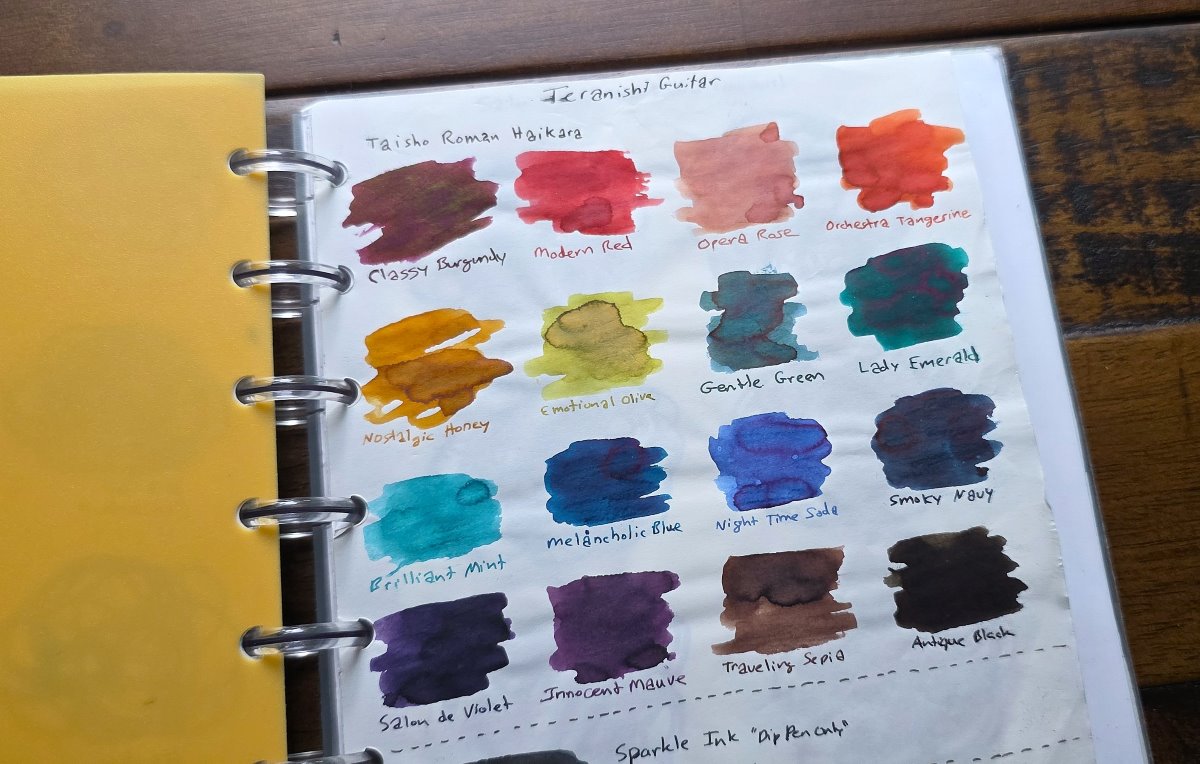 Teranishi Guitar
Taisho Roman Haikara
Classy Burgundy
Modern Red
Opera Rose
Orchestra Tangerine
Nostalgic Honey
Emotional Olive
Gentle Green
Lady Emerald
Brilliant Mint
Melancholic Blue
Night Time Soda
Smoky Navy
Salon de Violet
Innocent Mauve
Traveling Sepia
Antique Black
Sparkle Ink "Dip Pen Only"